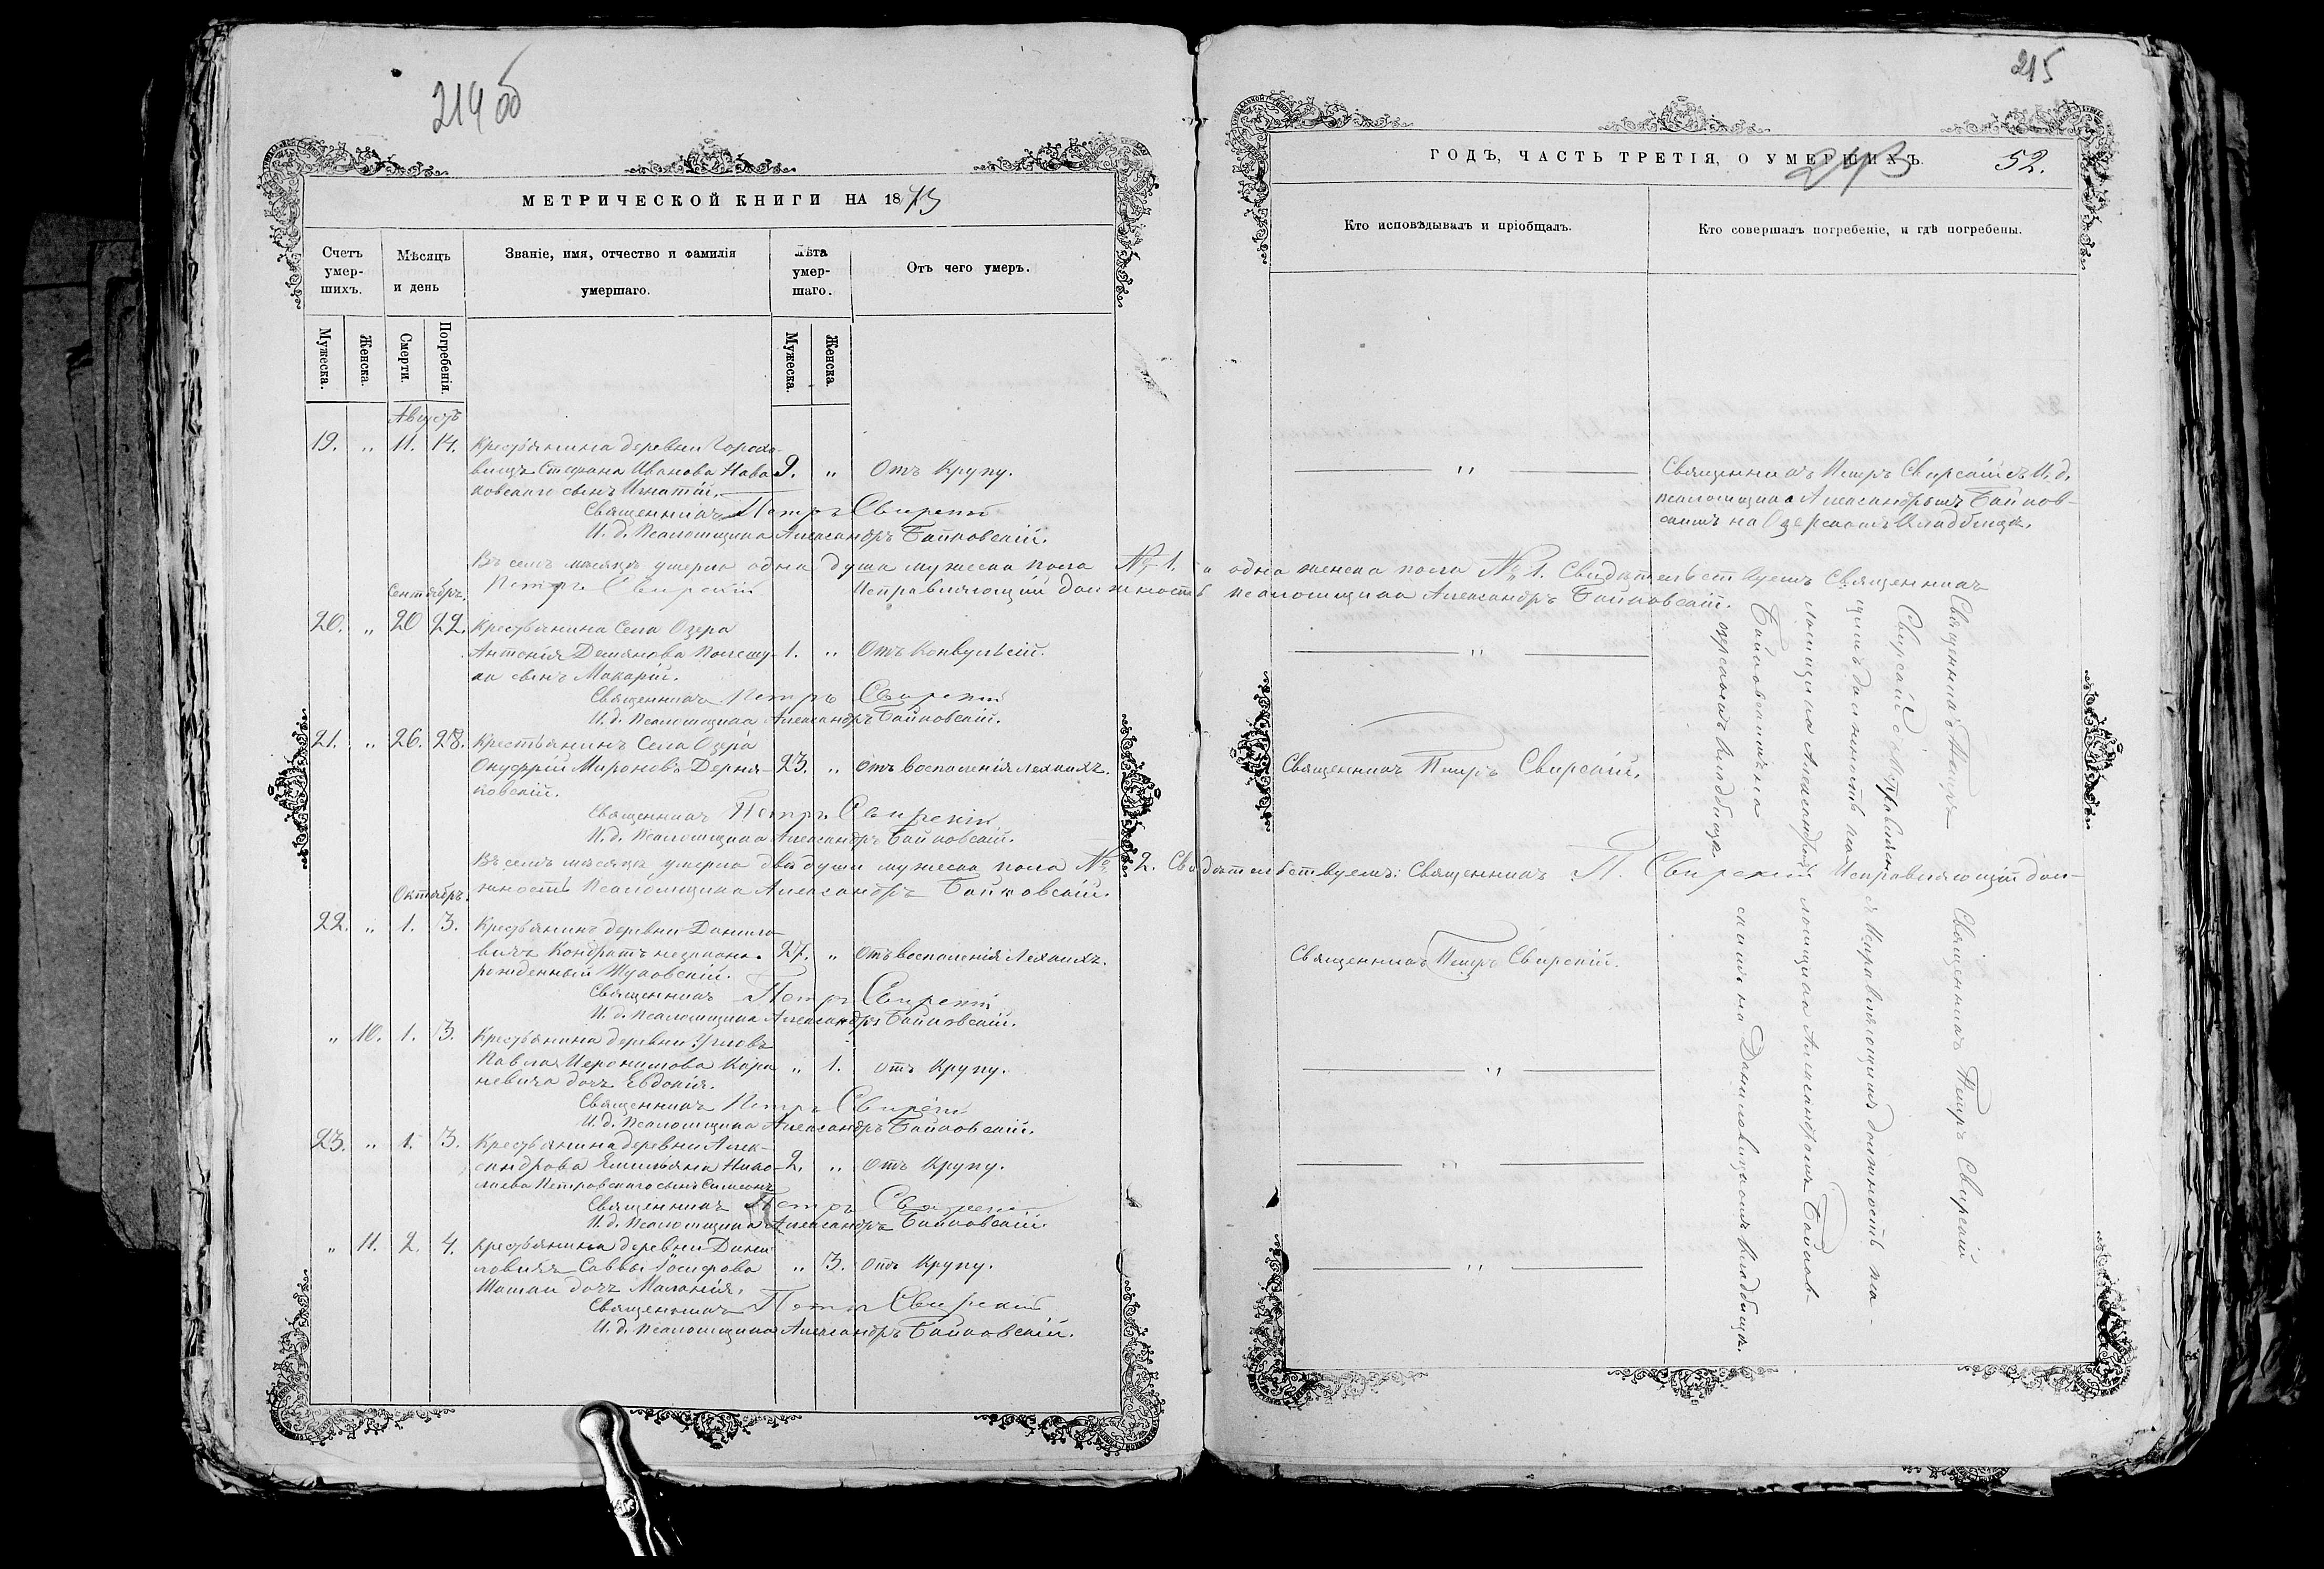 214 об
МЕТРИЧЕСКОЙ КНИГИ НА 1873
Счетъ умер-шихъ.
Мѣсяцъ и день
Званіе, имя, отчество и фамилія умершаго.
Лѣта умер-шаго.
Отъ чего умеръ.
Мужеска.
Женска.
Смерти.
Погребенія.
Мужеска.
Женска.
Августъ
19. „ 11. 14. Крестьянина деревни Горохо-
вищъ Стефана Иванова Нава- 9. „ Отъ Крупу.
ковскаго сынъ Игнатій.
Священникъ Петръ Свирскій
И. д. Псаломщика Александръ Байковскій.
Въ семъ мѣсяцѣ умерло одна душа мужеска пола № 1. и одна женска пола № 1. Свидѣтельствуемъ Священникъ
Петръ Свирскій Исправляющій должность псаломщика Александръ Байковскій.
Сентябрь.
20. „ 20 22. Крестьянина Села Озера
Антонія Демянова Полещу- 1. „ Отъ Конвульсій.
ка сынъ Макарій.
Священникъ Петръ Свирскій
И. д. Псаломщика Александръ Байковскій.
21. „ 26. 28. Крестьянинъ Села Озера
Онуфрій Мироновъ Дерня- 23. „ отъ воспаленія легкихъ.
ковскій.
Священникъ Петръ Свирскій
И. д. Псаломщика Александръ Байковскій.
Въ семъ мѣсяцѣ умерло двѣ души мужеска пола № 2. Свидѣтельствуемъ: Священникъ П. Свирскій Исправляющій дол-
жность Псаломщика Александръ Байковскій.
Октябрь.
22. „ 1. 3. Крестьянинъ деревни Данило-
вичъ Кондратъ незаконно- 27. „ Отъ воспаленія Легкихъ.
рожденный Жуковскій.
Священникъ Петръ Свирскій
И. д. Псаломщика Александръ Байковскій.
„ 10. 1. 3. Крестьянина деревни Угловъ
Павла Иеронимова Корж „ 1. отъ Крупу.
невича дочь Евдокія.
Священникъ Петръ Свирскій
И. д. Псаломщика Александръ Байковскій.
23. „ 1. 3. Крестьянина деревни Алек-
сандрова Емильяна Нико- 2. „ отъ Крупу.
лаева Петровскаго сынъ Симеонъ
Священникъ Петръ Свирскій
И. д. Псаломщика Александръ Байковскій.
„ 11. 2. 4. Крестьянина деревни Дани
ловичъ Саввы Іосифова „ 3. отъ Крупу.
дочь Маланія.
Священникъ Петръ Свирскій
И. д. Псаломщика Александръ Байковскій.
215
ГОДЪ, ЧАСТЬ ТРЕТІЯ, О УМЕРШИХЪ.
213
52.
Кто исповѣдывалъ и пріобщалъ.
Кто совершалъ погребеніе, и гдѣ погребены.
„ Священникъ Петръ Свирскій съ И. д.
псаломщика Александромъ Байков-
скимъ на Озерскомъ Кладбищѣ.
„
Священникъ Петръ Свирскій.
Священникъ Петръ
Свирскій съ Исправляю
щимъ должность пса
ломщика Александромъ
Байковскимъ на
озерскомъ кладбищѣ
Священникъ Петръ Свирскій.
„
„
„
Священникъ Петръ Свирскій
съ Исправляющимъ должность пса-
ломщика Александромъ Байков-
скимъ на Даниловицкомъ кладбищѣ.